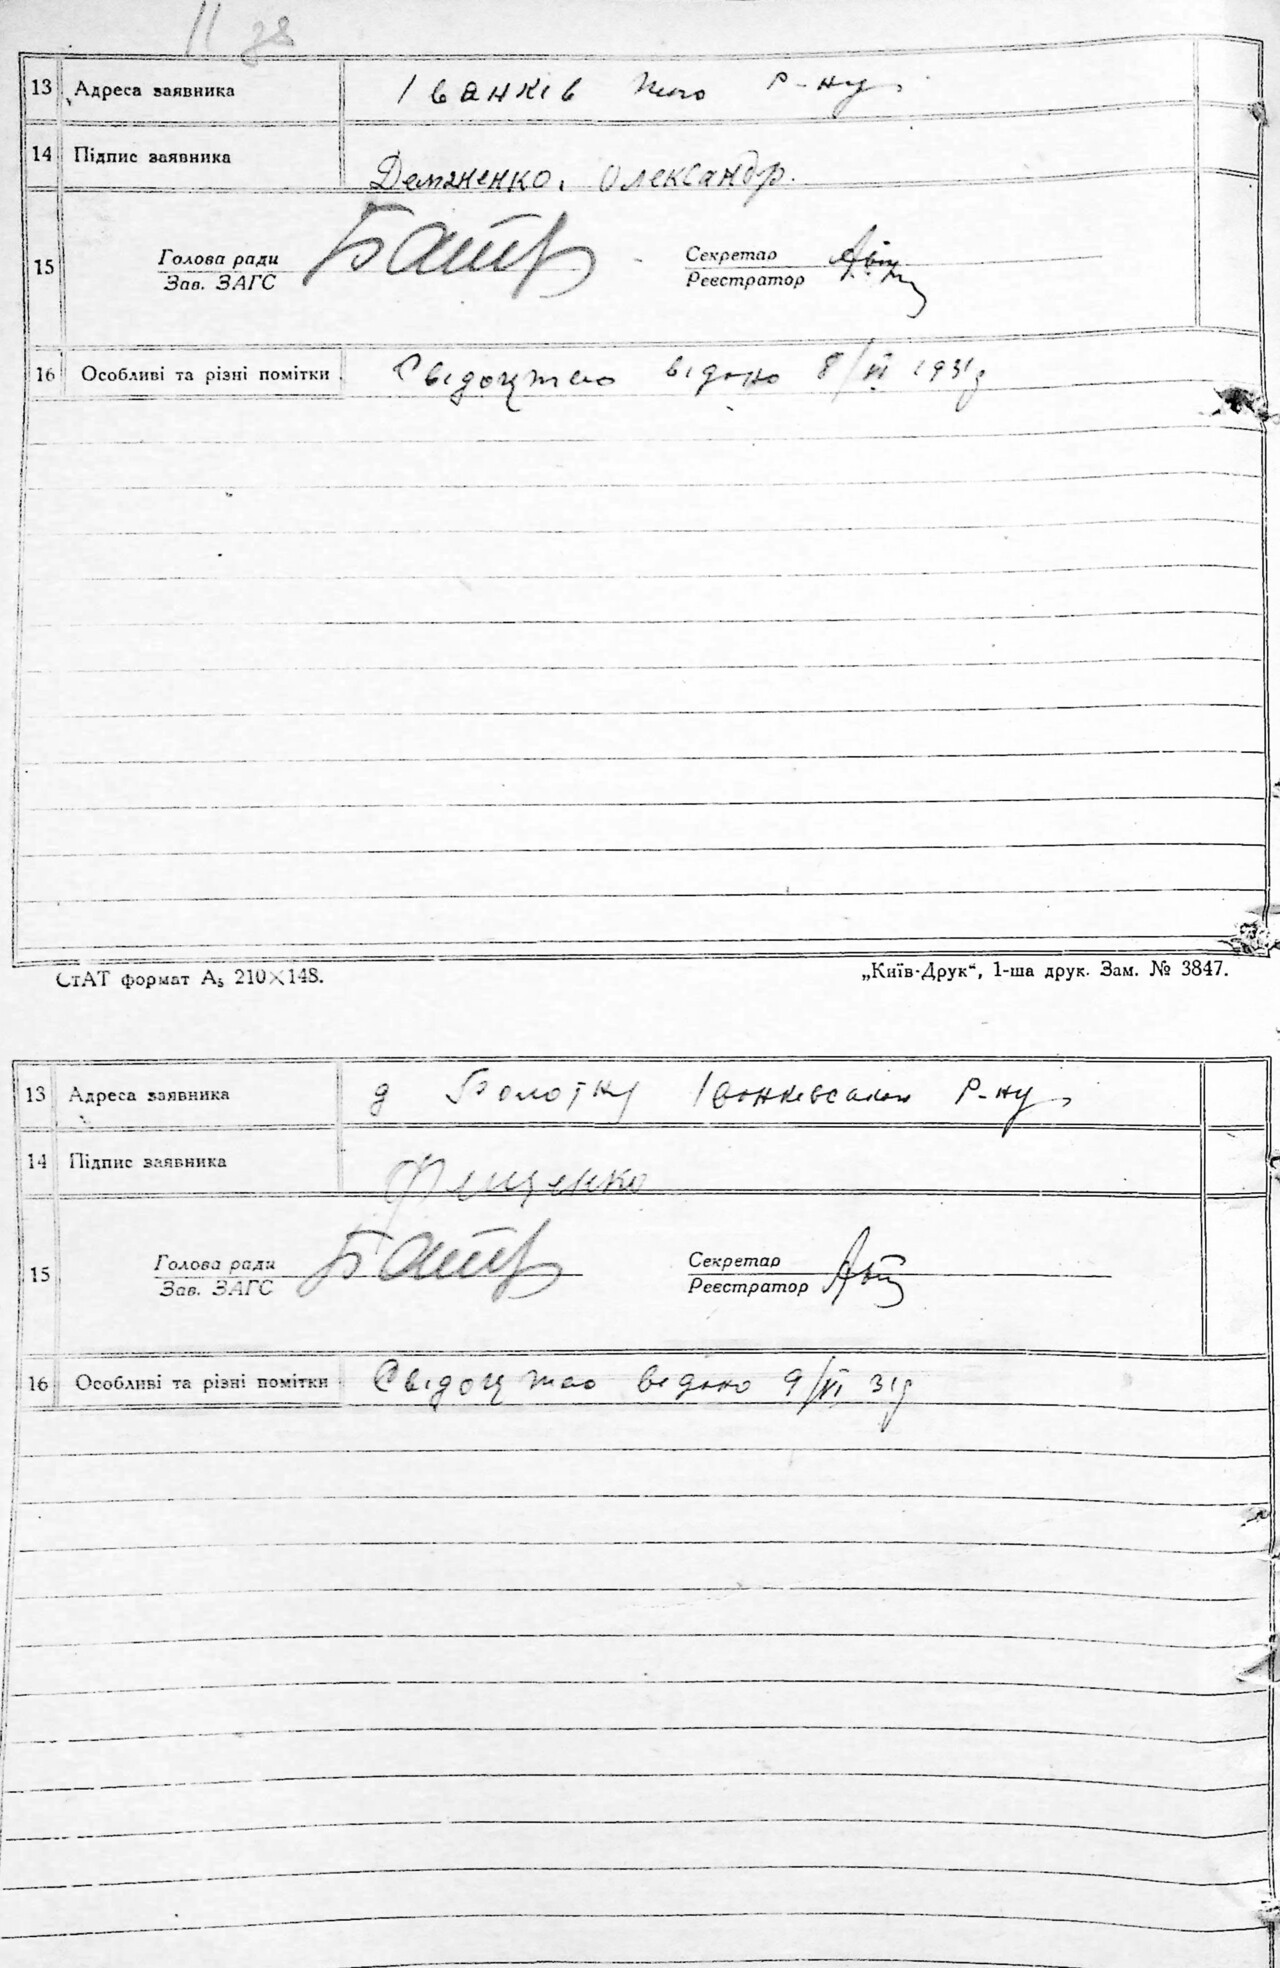 11 зв
13 Адреса заявника Іванків того р-ну
14 Підпис заявника Демяненко, Олександр.
Голова ради Секретар
15
Зав. ЗАГС Реєстратор
16 Особливі та різні помітки Свідоцтво видано 8/VI 1931р
СтАТ формат А₅ 210×148. „Київ-Друк“, 1-ша друк. Зам. № 3847.
13 Адреса заявника Іванківського р-ну
14 Підпис заявника
Голова ради Секретар
15
Зав. ЗАГС Реєстратор
16 Особливі та різні помітки Свідоцтво видано 9/VI 31р